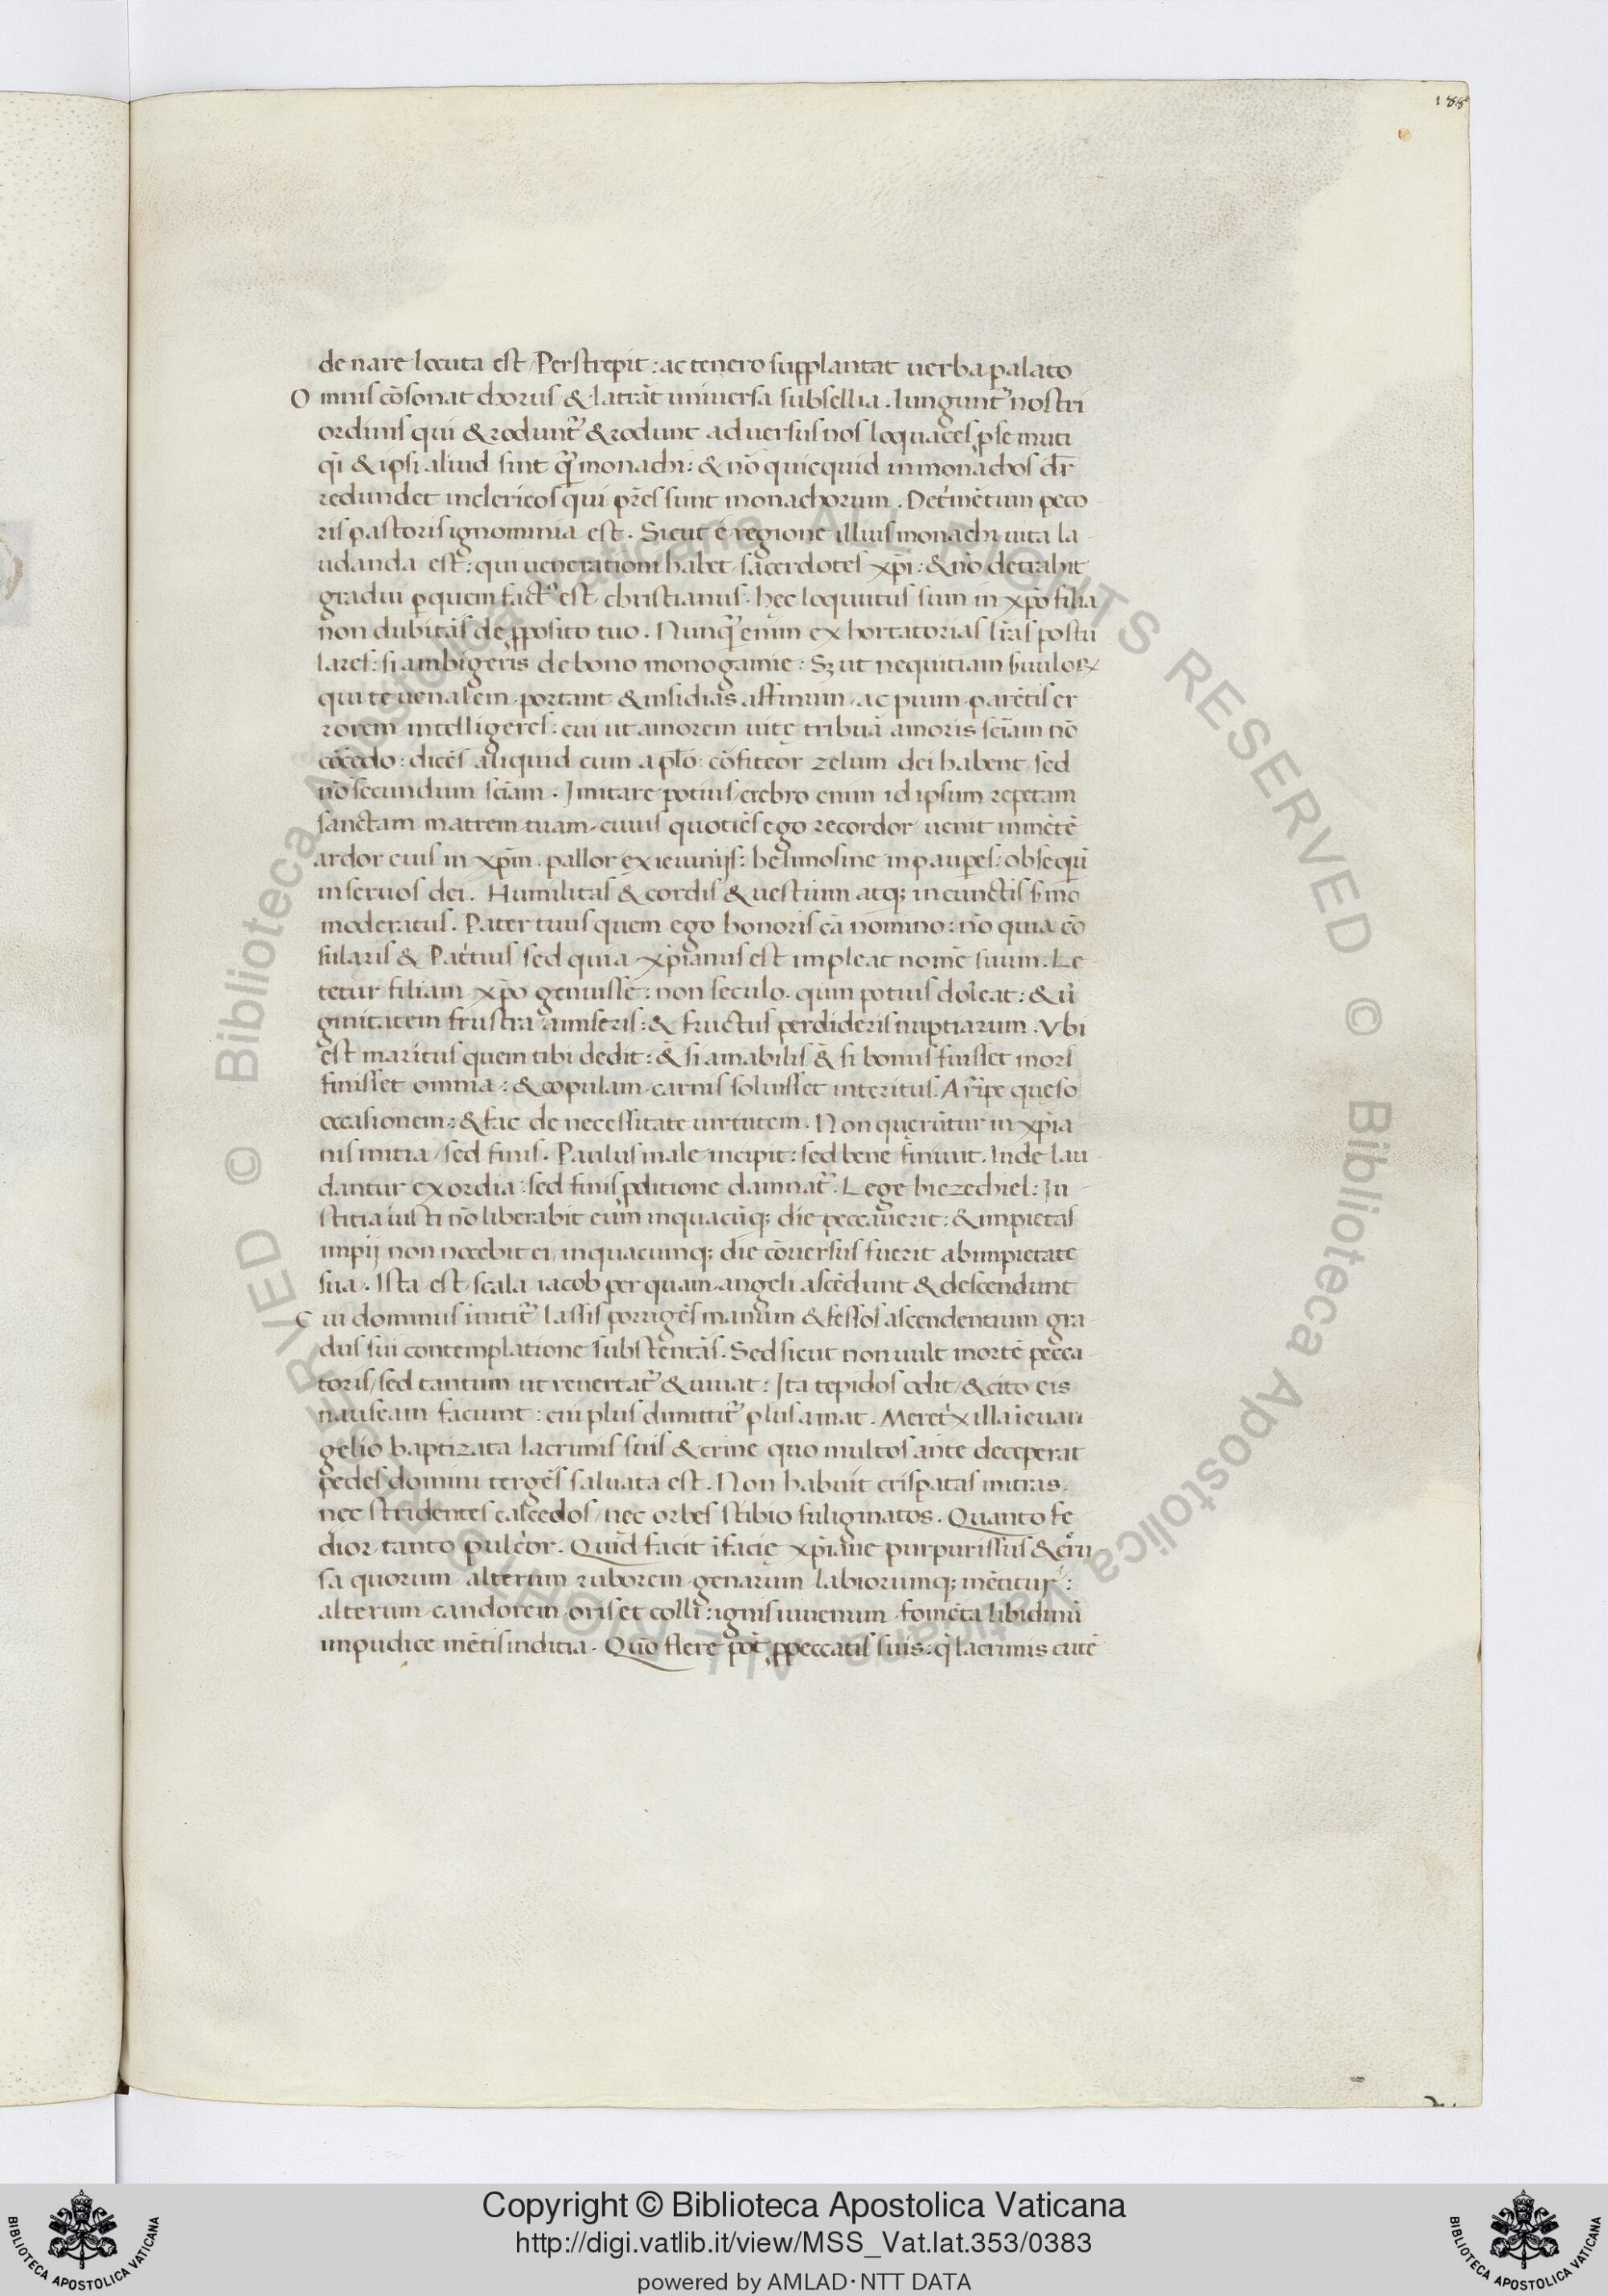 188
de nare locuta est / Perstrepit : ac tenero supplantat uerba palato
Omnis cõsonat chorus & latrãt uniuersa subsellia . Iungunt̃ nostri
ordinis qui & rodunt̃ & rodunt aduersus nos loquaces ꝓ se muti
q̃i & ipsi aliud sint q̃ monachi : & nõ quicquid in monachos dr̃
redundet in clericos qui pr̃es sunt monachorum . Detimẽtum peco
ris pastoris ignominia est . Sicut e regione illius monachi uita la
udanda est : qui uenerationi habet sacerdotes xp̃i : & nõ detrahit
gradui ꝑ quem fact᷒ est christianus . hęc loquutus sum in xp̃o filia
non dubitãs de ꝓposito tuo . Nunq̃ enim exhortatorias lr̃as postu
lares : si ambigeris de bono monogamie : Sꝫ ut nequitiam s̃uuloꝝ
qui te uenalem portant & insidias affinum , ac pium parẽtis er
rorem intelligeres : cui ut amorem uitę tribuã amoris sciãm nõ
cõcedo : dicẽs aliquid cum apl̃o : cõfiteor zelum dei habent / sed
nõ secundum sciãm . Imitare potius / crebro enim id ipsum repetam
sanctam matrem tuam , cuius quotiẽs ego recordor uenit in mẽtẽ
ardor eius in xp̃m . pallor ex ieiunijs : helimosine in pauꝑes : obsequĩ
in seruos dei . Humilitas & cordis & uestium atqꝫ in cunctis s̃mo
moderatus . Pater tuus quem ego honoris cã nomino : nõ quia cõ
sularis & Patitius / sed quia xp̃ianus est impleat nomẽ suum . Le
tetur filiam xp̃o genuisse : non seculo . quin potius doleat : & uĩ
ginitatem frustra amiseris : & fructus perdideris nuptiarum . Vbi
est maritus quem tibi dedit : & si amabilis & si bonus fuisset mors
finisset omnia : & copulam carnis soluisset interitus . Arripe queso
occasionem : & fac de necessitate uirtutem . Non quęrũtur in xp̃ia
nis initia / sed finis . Paulus male incipit : sed bene finiuit . Iude lau
dantur exordia : sed finis ꝓditione damnat̃ . Lege hiezechiel : Iu
stitia iusti nõ liberabit eum in quacũqꝫ die peccauerit : & impietas
impij non nocebit ei / in quacumqꝫ die cõuersus fuerit ab impietate
sua . Ista est scala iacob per quam angeli ascẽdunt & descendunt
Cui dominus initit̃ lassis porrigẽs manum & fessos ascendentium gra
dus sui contemplatione substentãs . Sed sicut non uult mortẽ pecca
toris / sed tantum ut reuertat̃ & uiuat : Ita tepidos odit / & cito eis
nauseam faciunt : cui plus dimittit̃ plus amat . Meretix illa ĩ euan
gelio baptizata lacrimis suis & crine quo multos ante deceperat
pedes domini tergẽs saluata est . Non habuit crispatas mitras .
nec stridentes calceolos / nec orbes stibio fuliginatos . Quanto fe
dior tanto pulcĩor . Quid facit ĩ facie xp̃iane purpurissus & ceru
sa quorum alterum ruborem genarum labiorumqꝫ mẽtitur :
alterum candorem oris et colli : ignis iuuenum fomẽta libidinũ
impudice mẽtis inditia . Quõ flere põt ꝓ peccatis suis : q̃ lacrimis cutẽ
Copyright © Biblioteca Apostolica Vaticana
http://digi.vatlib.it/view/MSS_Vat.lat.353/0383
powered by AMLAD·NTT DATA